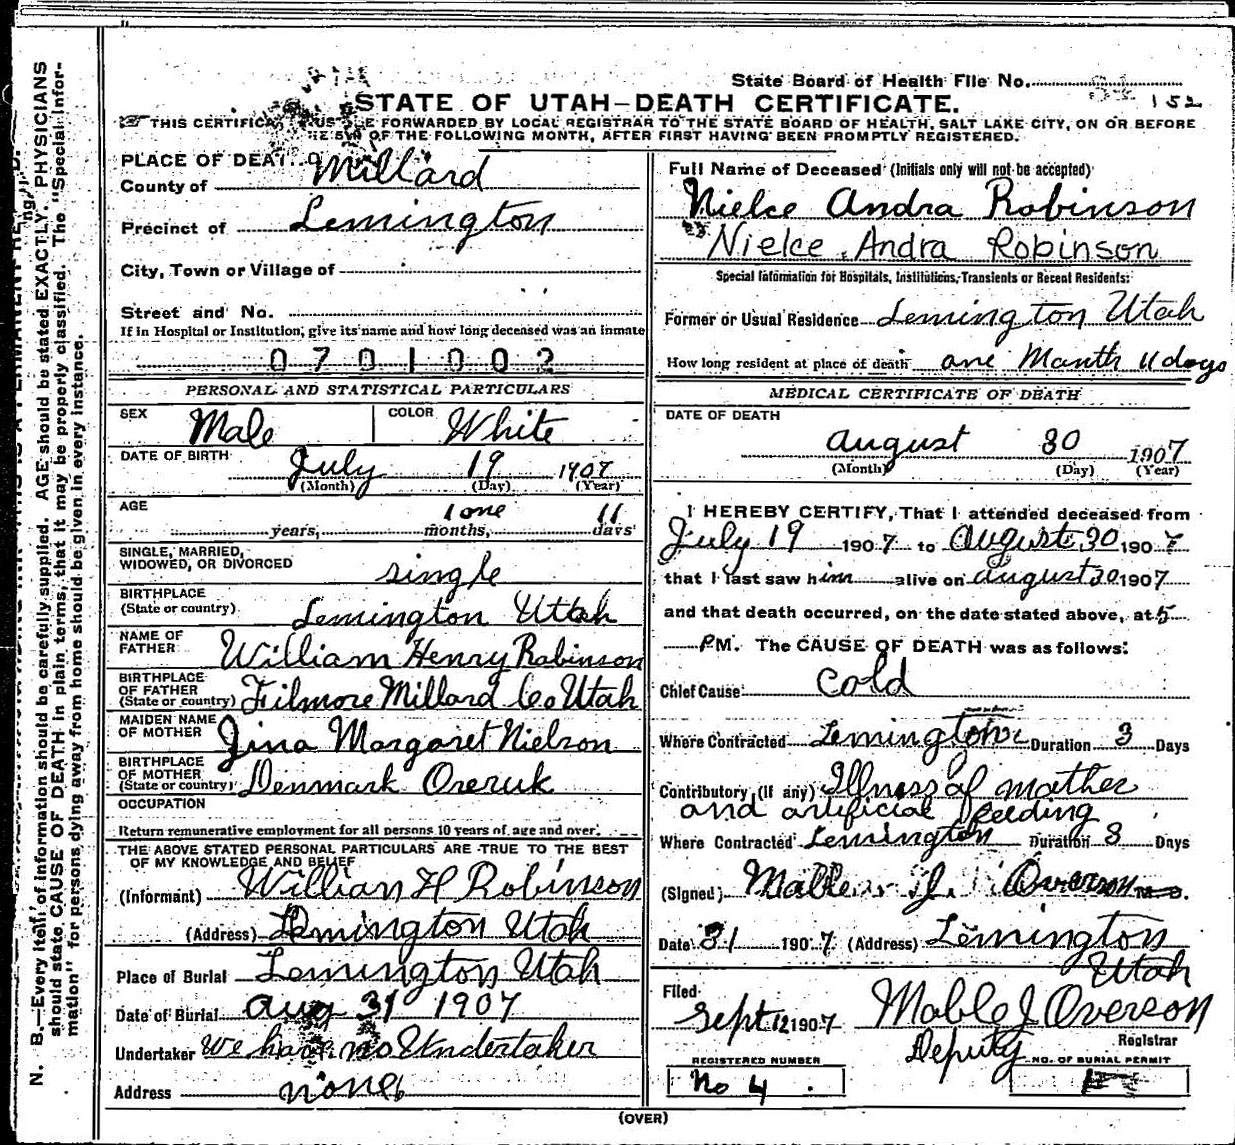 State Board of Health File No. 152
STATE OF UTAH—DEATH CERTIFICATE.
THIS CERTIFICA US BE FORWARDED BY LOCAL REGISTRAR TO THE STATE BOARD OF HEALTH, SALT LAKE CITY, ON OR BEFORE
HE 5 OF THE FOLLOWING MONTH, AFTER FIRST HAVING BEEN PROMPTLY REGISTERED.
PLACE OF DEAT
County of Millard
Precinct of Lemington
City, Town or Village of
Street and No.
If in Hospital or Institution, give its name and how long deceased was an inmate
0701002
PERSONAL AND STATISTICAL PARTICULARS
SEX Male COLOR White
DATE OF BIRTH July 19 1907
(Month) (Day) (Year)
AGE 1 one 11
years, months, days
SINGLE, MARRIED,
WIDOWED, OR DIVORCED single
BIRTHPLACE
(State or country) Lemington Uttah
NAME OF
FATHER William Henry Robinson
BIRTHPLACE
OF FATHER
(State or country) Filmore Millard Co Utah
MAIDEN NAME
OF MOTHER Jina Margaret Nielson
BIRTHPLACE
OF MOTHER
(State or country) Denmark Oreruk
OCCUPATION
Return remunerative employment for all persons 10 years of age and over.
THE ABOVE STATED PERSONAL PARTICULARS ARE TRUE TO THE BEST
OF MY KNOWLEDGE AND BELIEF
(Informant) William H Robinson
(Address) Lemington Utah
Place of Burial Lemington Utah
Date of Burial aug 31 1907
Undertaker we have no Undertaker
Address none
Full Name of Deceased (Initials only will not be accepted)
Nielce Andra Robinson
Nielce Andra Robinson
Special Information for Hospitals, Institutions, Transients or Recent Residents:
Former or Usual Residence Lemington Utah
How long resident at place of death one Month 11 days
MEDICAL CERTIFICATE OF DEATH
DATE OF DEATH
august 30 1907
(Month) (Day) (Year)
I HEREBY CERTIFY, That I attended deceased from
July 19 1907 to august 30 1907
that I last saw him alive on august 30 1907
and that death occurred, on the date stated above, at 5
PM. The CAUSE OF DEATH was as follows:
Chief Cause cold
Where Contracted Lemington Duration 3 Days
Contributory (if any) Illness of mother
and artificial feeding
Where Contracted Lemington Duration 3 Days
(Signed) J. Overson M.D.
Date 31 1907 (Address) Lemington
Utah
Filed
Sept 12 1907 Mable J Overson
Deputy Registrar
REGISTERED NUMBER NO. OF BURIAL PERMIT
No 4
(OVER)
N. B.—Every item of information should be carefully supplied. AGE should be stated EXACTLY. PHYSICIANS
should state CAUSE OF DEATH in plain terms, that it may be properly classified. The "Special Infor-
mation" for persons dying away from home should be given in every instance.